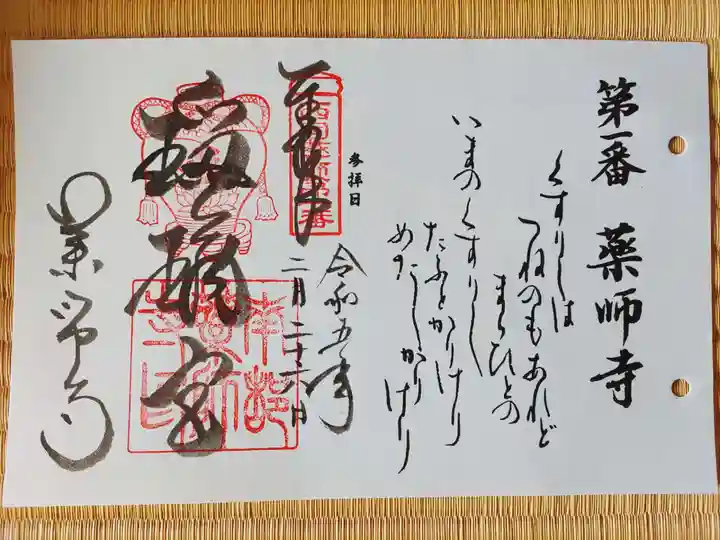 第一番 薬師寺
くすりしは
つねのもあれど
まらひとの
いまのくすりし
たふとかりけり
めだしかりけり
参拝日
令和五年
二月二十六日
奉拝
瑠璃宮
薬師寺